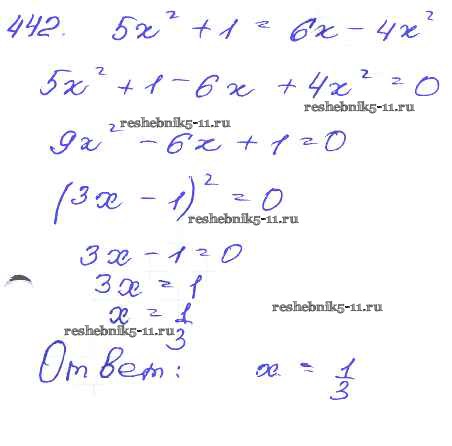 442. 5x² + 1 = 6x - 4x²
5x² + 1 - 6x + 4x² = 0
reshebnik5-11.ru
reshebnik5-11.ru
9x² - 6x + 1 = 0
(3x - 1)² = 0
reshebnik5-11.ru
3x - 1 = 0
3x = 1
x = 1/3
reshebnik5-11.ru
reshebnik5-11.ru
Ответ: x = 1/3